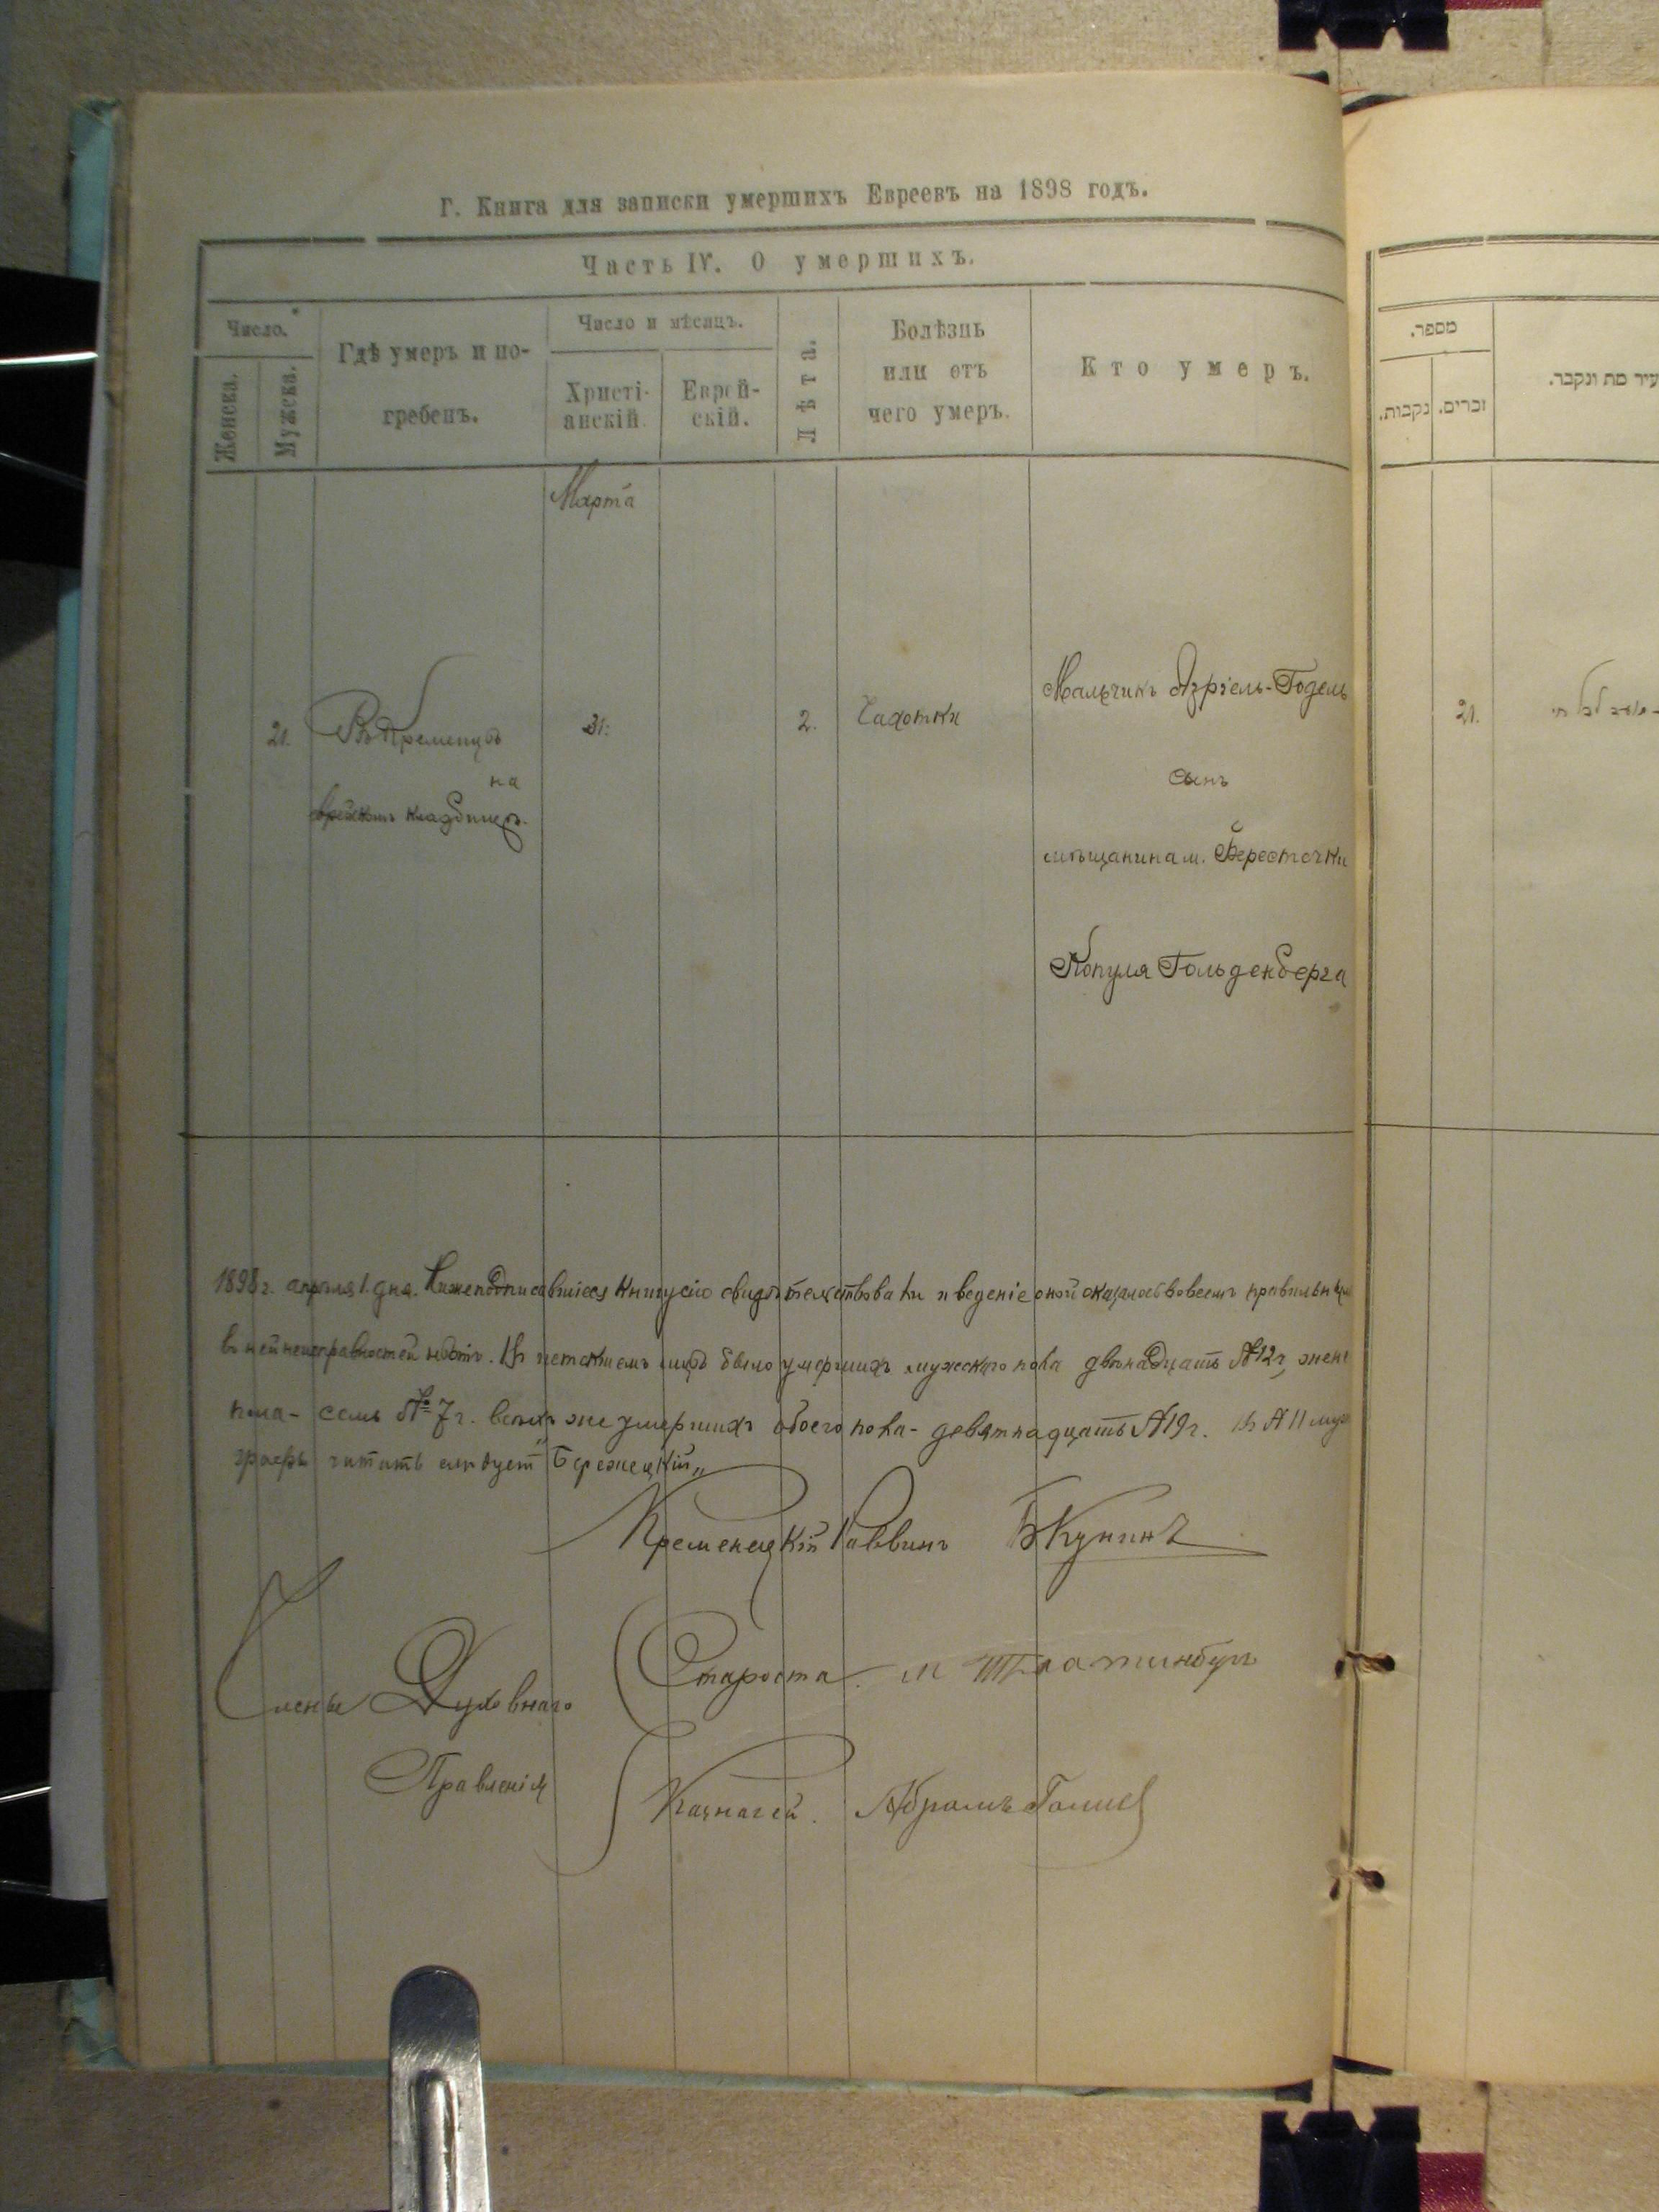 Г. Книга для записки умершихъ Евреевъ на 1898 годъ.
Часть IV. О умершихъ.
Число.
Женска.
Мужска.
Гдѣ умеръ и по-
гребенъ.
Число и мѣсяцъ.
Христі-
анскій.
Еврей-
скій.
Лѣта.
Болѣзнь
или отъ
чего умеръ.
Кто умеръ.
Марта
21.
Въ Кременцѣ
на
еврейскомъ кладбищѣ.
31.
2.
Чахотки
Мальчикъ Азріель-Годель
сынъ
мѣщанина м. Берестечки
Копуля Гольденберга
1898 г. апрѣля 1 дня. Нижеподписавшіеся книгу сію свидѣтельствовали и веденіе оной оказалось во всемъ правильнымъ
въ ней неисправностей нѣтъ. Въ истекшемъ м-цѣ было умершихъ мужского пола двѣнадцать №12 г., женс
пола - семь № 7 г. всѣхъ же умершихъ обоего пола - девятнадцать №19 г. въ №11 муж
графѣ читать слѣдуетъ "Бережецкій"
Кременецкій Раввинъ БКунинъ
Члены Духовнаго
Правленія
Староста. М
Казначей. Абрамъ
מספר.
נקבות.
זכרים.
עיר מת ונקבר.
21.